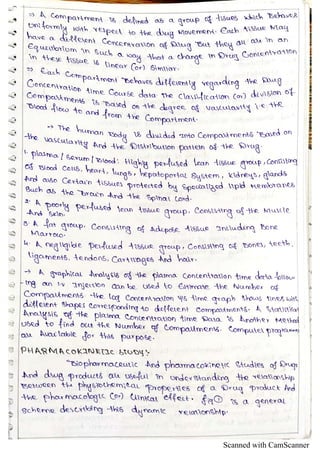 → A compartment is defined as a group of tissues which Behaves
Uniformly with respect to the drug movement. Each tissue May
have a different Concentration of Drug But they all are in an
Equilibrium in such a way that a change in Drug Concentration
in these tissue is linear (or) similar.
→ Each Compartment Behaves differently regarding the Drug
Concentration time Course data the Classification (or) division of
Compartments is Based on the degree of Vascularity i.e the
Blood flow to and from the Compartment.
→ The human Body is divided into Compartments Based on
the vascularity And the Distribution pattern of the Drug.
1. plasma / Serum / Blood: Highly perfused lean tissue group, Consisting
of Blood cells, heart, lungs, hepatoportal System, kidneys, glands
And also Certain tissues protected by Specialized lipid membranes
Such as the Brain And the Spinal Cord.
2. A poorly perfused lean tissue group, Consisting of the Muscle
And Skin.
3. A fat group, Consisting of Adipose tissue Including Bone
Marrow.
4. A negligible Perfused tissue group, Consisting of Bones, teeth,
ligaments, tendons, Cartilages And hair.
→ A graphical Analysis of the plasma Concentration time data follow-
-ing an iv Injection can be used to Estimate the Number of
Compartments. The log Concentration Vs time graph Shows lines with
different Shapes Corresponding to different Compartments. A Statistical
Analysis of the plasma Concentration time Data is Another Method
used to find out the Number of Compartments. Computer programs
are Available for this purpose.
PHARMACOKINETIC STUDY:-
Biopharmaceutic And pharmacokinetic Studies of Drugs
And drug products are useful in understanding the relationship
Between the physiochemical properties of a Drug product And
the pharmacologic (or) Clinical effect. fig ① is a general
Scheme describing this dynamic relationship.
Scanned with CamScanner